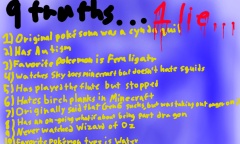 9 truths... 1 lie...
1) Original pokésona was a cyndaquil
2) Has Autism
3) Favorite Pokemon is Feraligatr
4) Watches Sky Does Minecraft but doesn't hate squids
5) Has played the flute but stopped
6) Hates birch planks in Minecraft
7) Originally said that sucks, but was taking out anger on
8) Has an on-going what if about being part dragon
9) Never watched Wizard of Oz
10) Favorite Pokémon type is Water